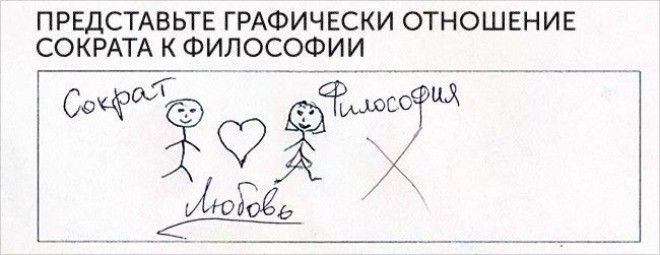 ПРЕДСТАВЬТЕ ГРАФИЧЕСКИ ОТНОШЕНИЕ
СОКРАТА К ФИЛОСОФИИ
Сократ
Философия
Любовь